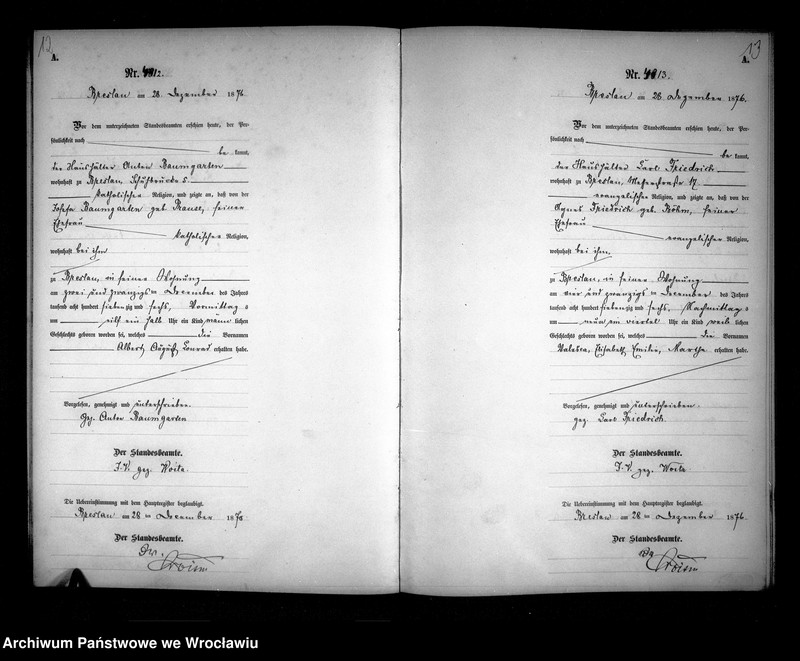 12
A.
Nr. 4912.
Breslau am 28 Dezember 1876
Vor dem unterzeichneten Standesbeamten erschien heute, der Per-
sönlichkeit nach
be kannt,
der Haushälter Anton Baumgarten
wohnhaft zu Breslau, Schuhbrücke 5
katholischer Religion, und zeigte an, daß von der
Josefa Baumgarten geb Krause, seiner
Ehefrau
katholischer Religion,
wohnhaft bei ihm
zu Breslau, in seiner Wohnung
am zwei und zwanzigsten December des Jahres
tausend acht hundert siebenzig und sechs, Vormittags
um elf ein halb Uhr ein Kind männlichen
Geschlechts geboren worden sei, welches die Vornamen
Albert, August, Conrad erhalten habe.
Vorgelesen, genehmigt und unterschrieben
gez. Anton Baumgarten
Der Standesbeamte.
I.V. gez. Woita
Die Uebereinstimmung mit dem Hauptregister beglaubigt.
Breslau am 28 ten December 1876
Der Standesbeamte.
13
A.
Nr. 4913.
Breslau am 28 Dezember 1876.
Vor dem unterzeichneten Standesbeamten erschien heute, der Per-
sönlichkeit nach
be kannt,
der Haushälter Carl Friedrich
wohnhaft zu Breslau, 17
evangelischer Religion, und zeigte an, daß von der
Agnes Friedrich geb. Böhm, seiner
Ehefrau
evangelischer Religion,
wohnhaft bei ihm,
zu Breslau, in seiner Wohnung
am vier und zwanzigsten December des Jahres
tausend acht hundert siebenzig und sechs, Nachmittags
um neun ein viertel Uhr ein Kind weiblichen
Geschlechts geboren worden sei, welches die Vornamen
Valesca, Elisabeth, Emilie, Martha erhalten habe.
Vorgelesen, genehmigt und unterschrieben
gez. Carl Friedrich
Der Standesbeamte.
I.V. gez. Woita
Die Uebereinstimmung mit dem Hauptregister beglaubigt.
Breslau am 28 ten Dezember 1876.
Der Standesbeamte.
Archiwum Państwowe we Wrocławiu